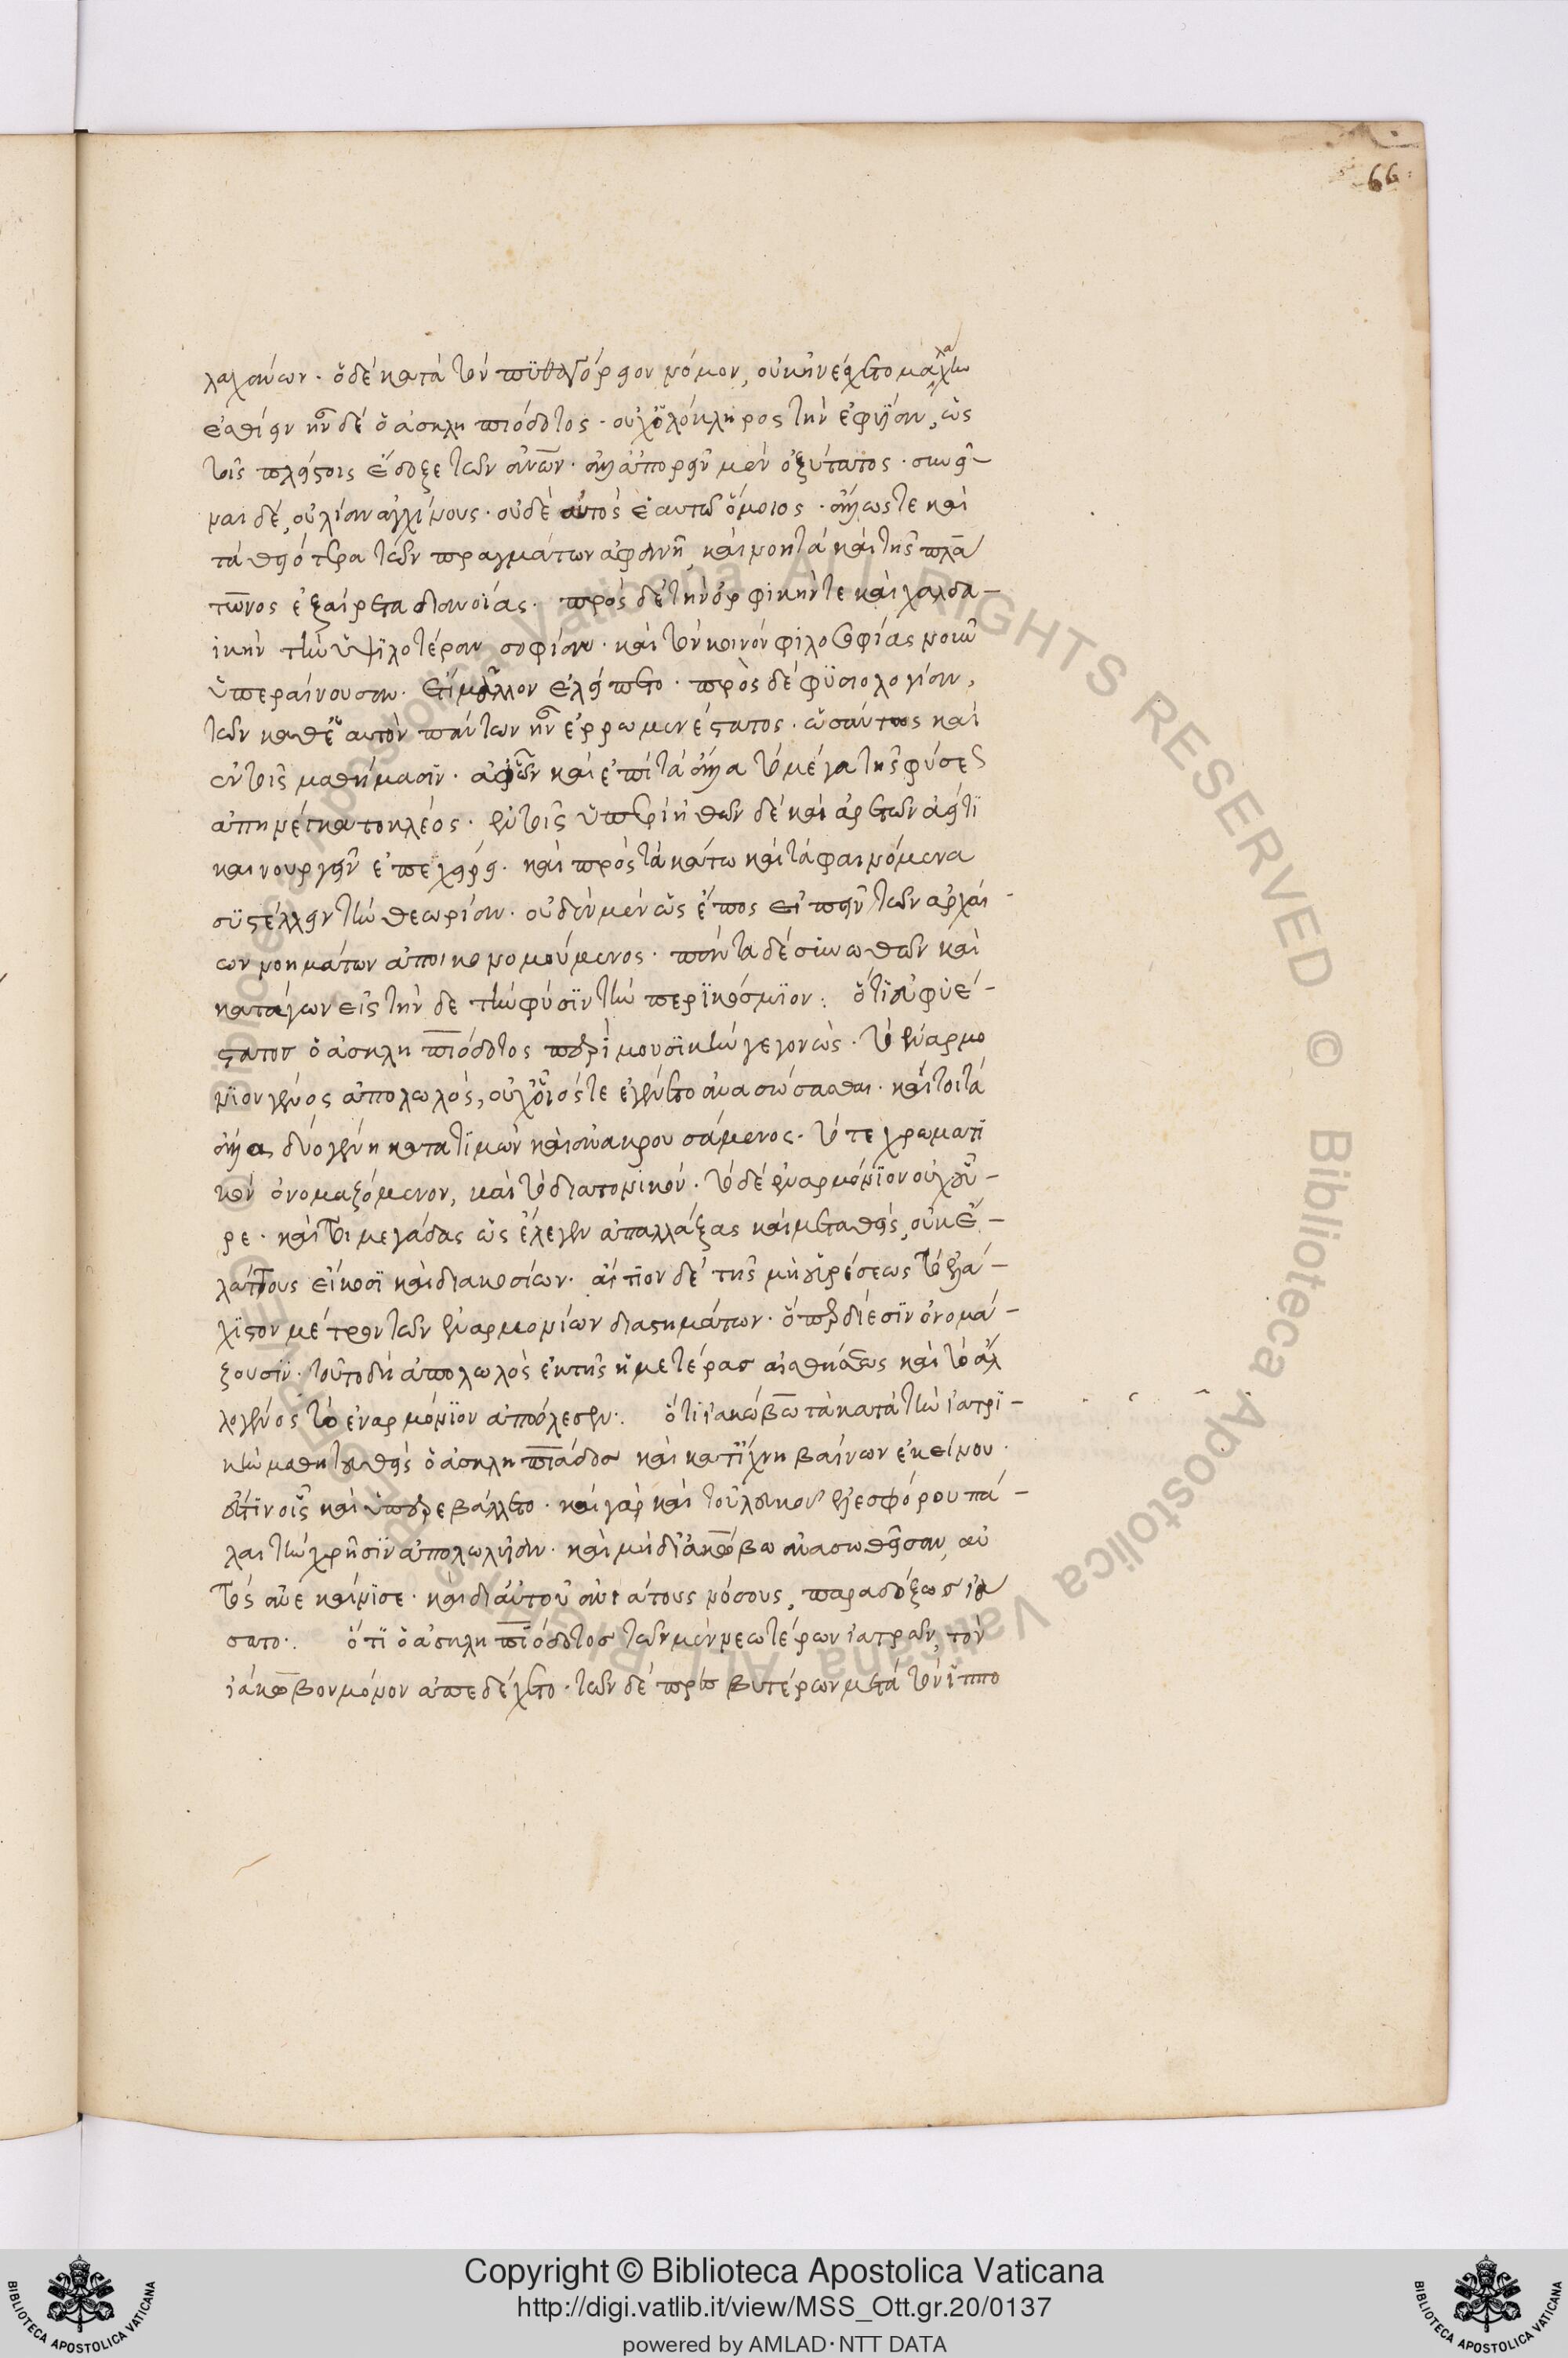 66
λαχανων. ὁ δὲ κατὰ τὸν πυθαγόρειον νόμον, οὐκ ἠνέχετο μαλάχην
ἐσθίειν ἦν δὲ ὁ ἀσκληπιόδοτος. οὐχ ὁλόκληρος τὴν εὐφυΐαν, ὡς
τοῖς πλείστοις ἔδοξε τῶν ἀνῶν. ἀλλ' ἀπορεῖν μὲν ὀξύτατος. συνεῖ-
ναι δὲ, οὐ λίαν ἀγχίνους. οὐδὲ αὐτὸς ἑαυτῶ ὅμοιος. ἄλλως τε καὶ
τὰ θειότερα τῶν πραγμάτων ἀφανῆ, καὶ νοητὰ καὶ τῆς πλά
τωνος ἐξαίρετα διανοίας. πρὸς δὲ τὴν ὀρφικήν τε καὶ χαλδα-
ικὴν τὴν ὑψηλοτέραν σοφίαν. καὶ τὸν κοινὸν φιλοσοφίας νοῦν
ὑπεραίρουσαν. ἔτι μᾶλλον ἐλείπετο. πρὸς δὲ φυσιολογίαν,
τῶν καθ' ἑαυτὸν πάντων ἦν ἐρρωμενέστατος. ὡσαύτως καὶ
ἐν τοῖς μαθήμασιν. ἀφ' ὧν καὶ ἐπὶ τὰ ἄλλα τὸ μέγα τῆς φύσεως
ἀπηνέγκατο κλέος. ἐν τοῖς ὑπὲρ ἠθῶν δὲ καὶ ἀρετῶν ἀεί τι
καινουργεῖν ἐπεχείρει. καὶ πρὸς τὰ κάτω καὶ τὰ φαινόμενα
συστέλλειν τὴν θεωρίαν. οὐδὲν μὲν ὡς ἔπος εἰπεῖν τῶν ἀρχαί-
ων νοημάτων ἀποικονομούμενος. πάντα δὲ συνωθῶν καὶ
κατάγων εἰς τήνδε τὴν φύσιν τὴν περικόσμιον: ὅτι εὐφυέ-
στατος ὁ ἀσκληπιόδοτος περὶ μουσικὴν γεγονὼς. τὸ ἐναρμό
νιον γένος ἀπολωλὸς, οὐχ οἷός τε ἐγένετο ἀνασώσασθαι. καίτοι τὰ
ἄλλα δύο γένη κατατεμὼν καὶ ἀνακρουσάμενος. τό τε χρωματι
κὸν ὀνομαζόμενον, καὶ τὸ διατονικόν. τὸ δὲ ἐναρμόνιον οὐχ εὗ-
ρε. καίτοι μεγάδας ὡς ἔλεγεν ἀπαλλάξας καὶ μεταθεὶς, οὐκ ἐ-
λάττους εἴκοσι καὶ διακοσίων. αἴτιον δὲ τῆς μὴ εὑρέσεως τὸ ἐλά-
χιστον μέτρον τῶν ἐναρμονίων διαστημάτων. ὅπερ δίεσιν ὀνομά-
ζουσιν. τοῦτο δὴ ἀπολωλὸς ἐκ τῆς ἡμετέρας αἰσθήσεως καὶ τὸ ἄλ
λο γένος τὸ ἐναρμόνιον ἀπώλεσεν: ὅτι ἰακώβω τὰ κατὰ τὴν ἰατρι-
κὴν μαθητευθεὶς ὁ ἀσκληπιόδοτος καὶ κατ' ἴχνη βαίνων ἐκείνου.
ἔστιν οἷς καὶ ὑπερεβάλλετο. καὶ γὰρ καὶ τοῦ λευκοῦ ἐλλεβόρου πά-
λαι τὴν χρῆσιν ἀπολωλυῖαν. καὶ μηδ' ἰακώβω ἀνασωθεῖσαν, αὐ
τὸς ἀνεκαίνισε. καὶ δι' αὐτοῦ ἀνιάτους νόσους, παραδόξως ἰά
σατο: ὅτι ὁ ἀσκληπιόδοτος τῶν μὲν νεωτέρων ἰατρῶν, τὸν
ἰάκωβον μόνον ἀπεδέχετο. τῶν δὲ πρεσβυτέρων μετὰ τὸν ἱππο
Copyright © Biblioteca Apostolica Vaticana
http://digi.vatlib.it/view/MSS_Ott.gr.20/0137
powered by AMLAD·NTT DATA